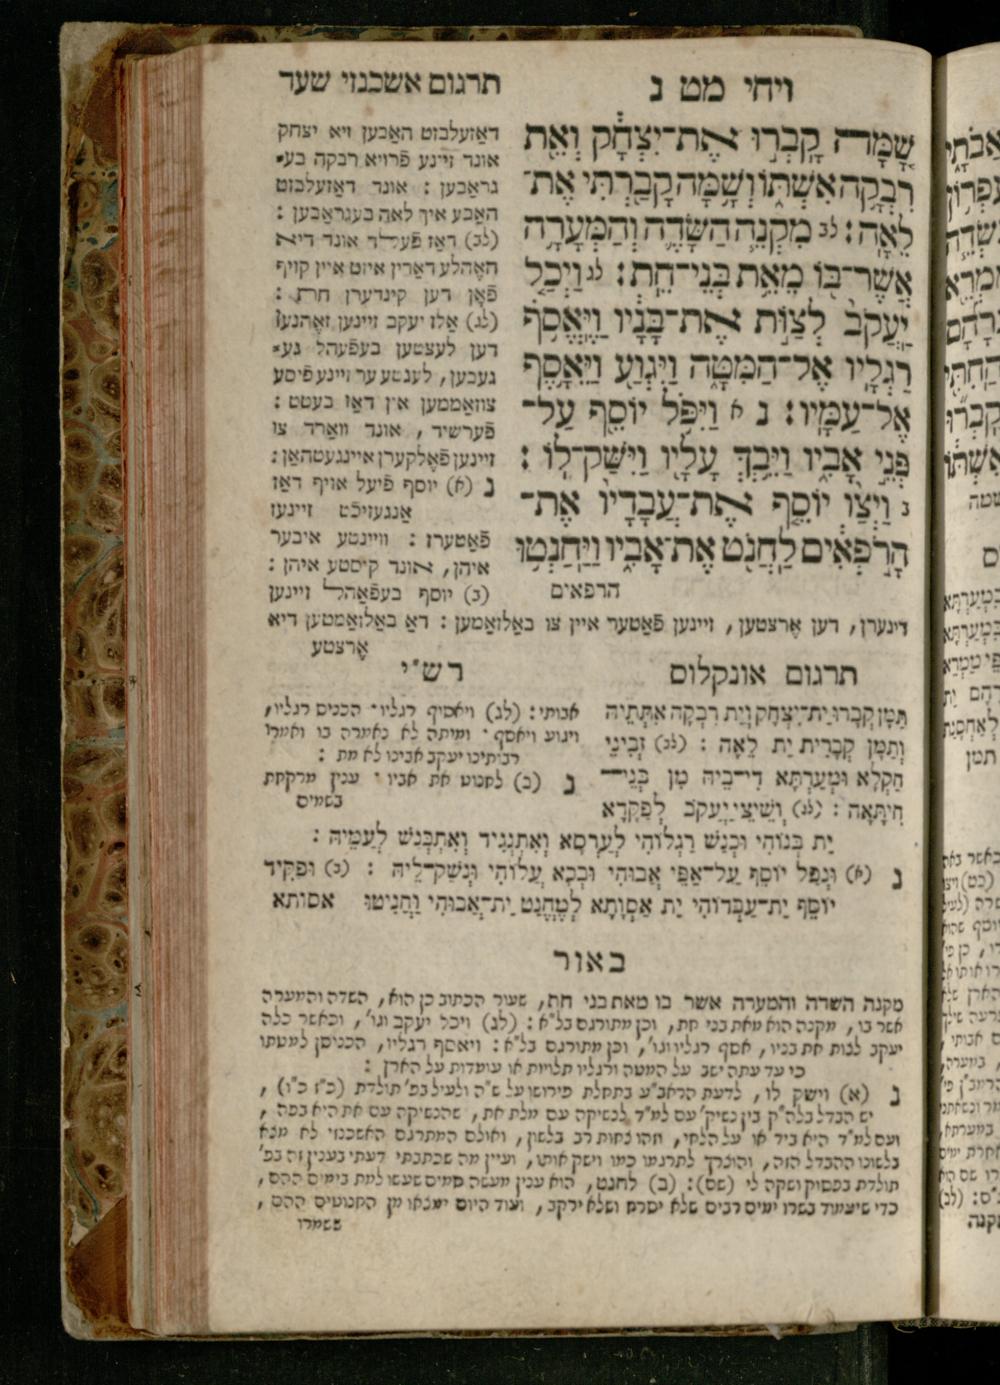 ויחי מט נ
תרגום אשכנזי שער
שָׁמָּה קָבְרוּ אֶת־יִצְחָק וְאֵת
רִבְקָה אִשְׁתּוֹ וְשָׁמָּה קָבַרְתִּי אֶת־
לֵאָה׃ לב מִקְנֵה הַשָּׂדֶה וְהַמְּעָרָה
אֲשֶׁר־בּוֹ מֵאֵת בְּנֵי־חֵת׃ לג וַיְכַל
יַעֲקֹב לְצַוֹּת אֶת־בָּנָיו וַיֶּאֱסֹף
רַגְלָיו אֶל־הַמִּטָּה וַיִּגְוַע וַיֵּאָסֶף
אֶל־עַמָּיו׃ נ א וַיִּפֹּל יוֹסֵף עַל־
פְּנֵי אָבִיו וַיֵּבְךְּ עָלָיו וַיִּשַּׁק־לוֹ׃
ב וַיְצַו יוֹסֵף אֶת־עֲבָדָיו אֶת־
הָרֹפְאִים לַחֲנֹט אֶת־אָבִיו וַיַּחַנְטוּ
הרפאים
דאַזעלבזט האַבען זיא יצחק
אונד זיינע פֿרויא רבקה בע־
גראַבען : אונד דאַזעלבזט
האַבע איך לאה בעגראַבען :
(לב) דאַז פֿעלד אונד דיא
האָהלע דאַרין איזט איין קויף
פֿאָן דען קינדערן חת :
(לג) אַלז יעקב זיינען זאָהנען
דען לעצטען בעפֿעהל גע־
געבען, לענגטע ער זיינע פֿיסע
צוזאַממען אין דאַז בעטט :
פֿערשיד, אונד וואַרד צו
זיינען פֿאָלקערן איינגעטהאַן :
נ (א) יוסף פֿיעל אויף דאַז
אַנגעזיכֿט זיינעז
פֿאַטערז : וויינטע איבער
איהן, אונד קיסטע איהן :
(ב) יוסף בעפֿאָהל זיינען
דינערן, דען אֶרצטען, זיינען פֿאַטער איין צו באַלזאַמען : דאַ באַלזאַמטען דיא
אֶרצטע
תרגום אונקלוס
תַּמָּן קְבָרוּ יַת־יִצְחָק וְיַת רִבְקָה אִתְּתֵיהּ
וְתַמָּן קְבָרִית יַת לֵאָה : (לב) זְבִינֵי
חַקְלָא וּמְעַרְתָּא דִי־בֵיהּ מִן בְּנֵי־
חִיתָּאָה : (לג) וְשֵׁיצֵי יַעֲקֹב לְפַקָּדָא
יַת בְּנוֹהִי וּכְנַשׁ רַגְלוֹהִי לְעַרְסָא וְאִתְנְגִיד וְאִתְכְּנִשׁ לְעַמֵּיהּ :
נ (א) וּנְפַל יוֹסֵף עַל־אַפֵּי אֲבוּהִי וּבְכָא עֲלוֹהִי וּנְשַׁק־לֵיהּ : (ב) וּפַקִּיד
יוֹסֵף יַת־עַבְדּוֹהִי יַת אַסְוָתָא לְמֶחֱנַט יַת־אֲבוּהִי וַחֲנִיטוּ אסותא
רש״י
אבותי: (לג) ויאסוף רגליו׳ הכניס רגליו,
ויגוע ויאסף ׳ ומיתה לא נאמרה בו ואמרו
רבותינו יעקב אבינו לא מת :
נ (ב) לחנוט את אביו ׳ ענין מרקחת
בשמים
באור
מקנה השדה והמערה אשר בו מאת בני חת, שעור הכתוב כן הוא, השדה והמערה
אשר בו, מקנה הוא מאת בני חת, וכן מתורגם בל״א : (לג) ויכל יעקב וגו׳, וכאשר כלה
יעקב לצות את בניו, אסף רגליו וגו׳, וכן מתורגם בל״א : ויאסף רגליו, הכניסן למטתו
כי עד עתה ישב על המטה ורגליו תלויות או עומדות על הארץ :
נ (א) וישק לו, לדעת הראב״ע בתחלת פירושו על ש״ה ולעיל בפ׳ תולדת (כ״ז כ״ז),
יש הבדל בלה״ק בין נשיק׳ עם למ״ד לנשיקה עם מלת את, שהנשיקה עם את היא בפה,
ועם למ״ד היא ביד או על הלחי, וזהו נחות רב בלשון, ואולם המתרגם האשכנזי לא מצא
בלשונו ההבדל הזה, והוצרך לתרגמו כמו וישק אותו, ועיין מה שכתבתי דעתי בענין זה בפ׳
תולדת בפסוק ושקה לי (שם): (ב) לחנט, הוא ענין מעשה סמים שעשו למת בימים ההם,
כדי שיעמוד בשרו ימים רבים שלא יסרח ושלא ירקב, ועוד היום ימצאו מן החנוטים ההם,
שנשמרו